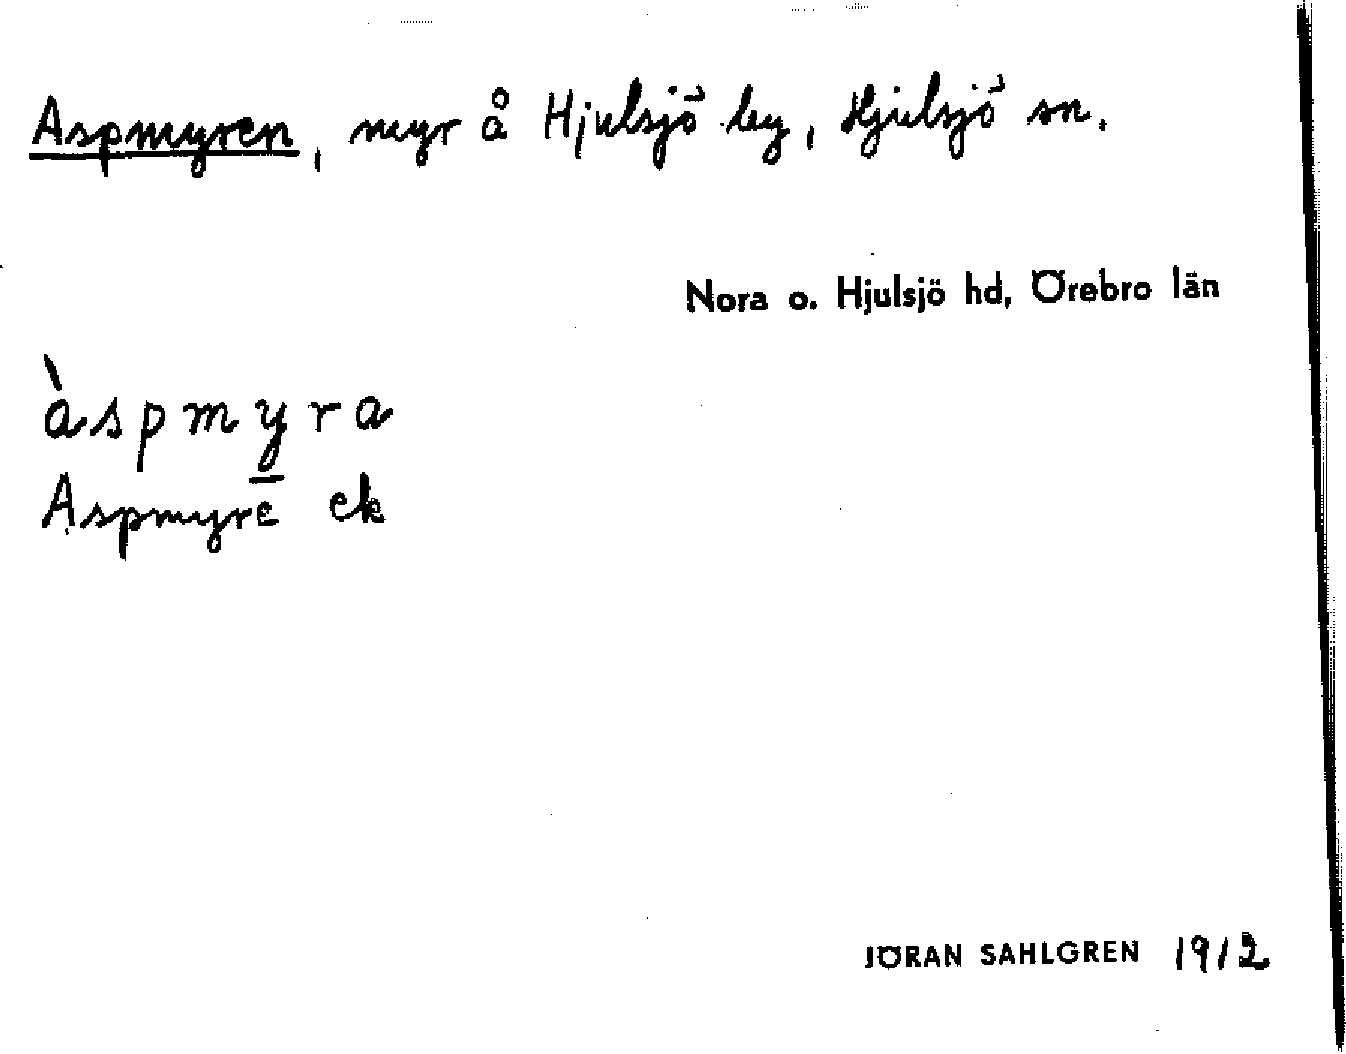 Aspmyren, myr å Hjulsjö by, Hjulsjö sn.
Nora o. Hjulsjö hd, Örebro län
àspmyra
Aspmyrē ek
JÖRAN SAHLGREN 1912